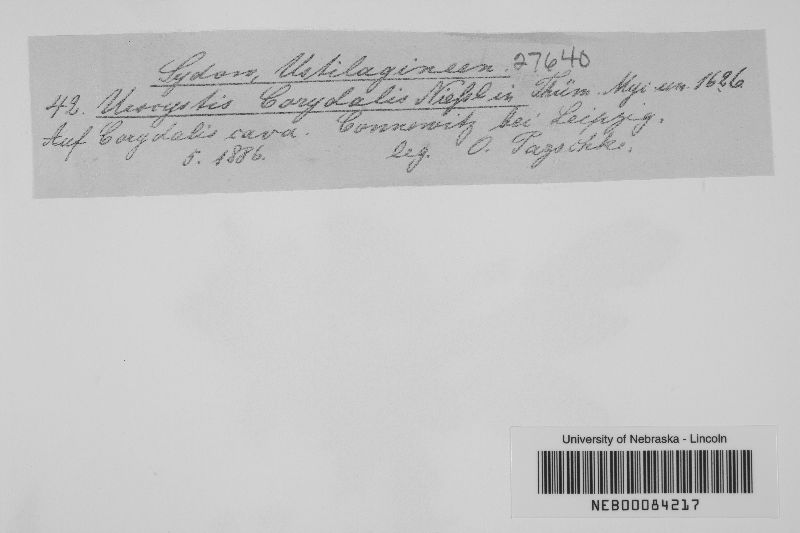 Sydow, Ustilagineen 27640
42. Urocystis Corydalis Niessl in Thüm. Myc. un. 1626
Auf Corydalis cava. Connewitz bei Leipzig.
5. 1886. leg. O. Pazschke.
University of Nebraska - Lincoln
NEB00084217